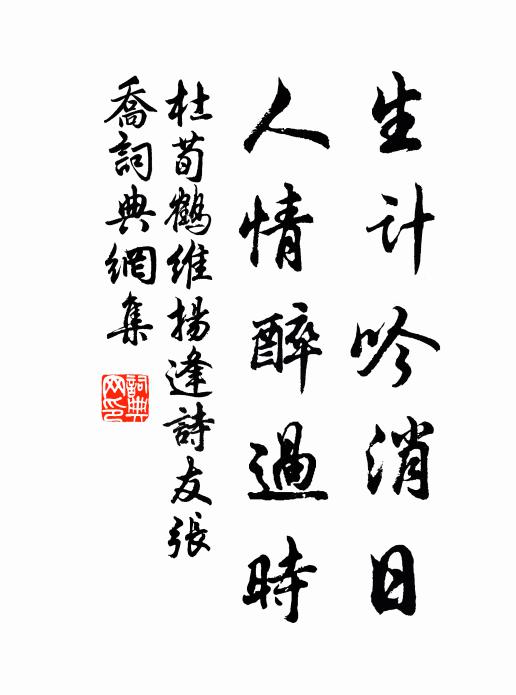 生計吟消日
人情醉過時
杜荀鶴維揚逢詩友張
喬詞典網集
詞典网印